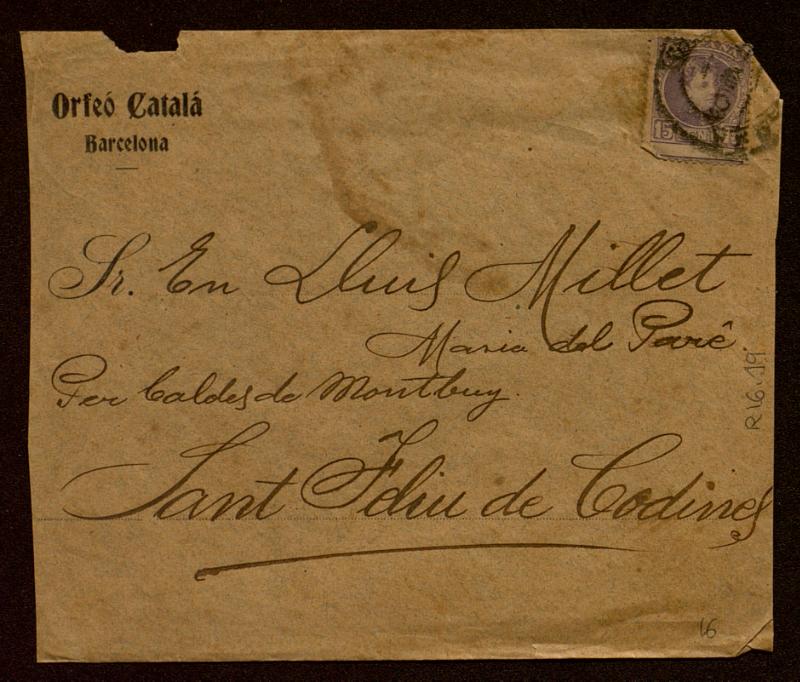 Orfeó Catalá
Barcelona
15
Sr. En Lluis Millet
Maria del Paré
Per Caldes de Montbuy.
Sant Feliu de Codines
R16.19
16